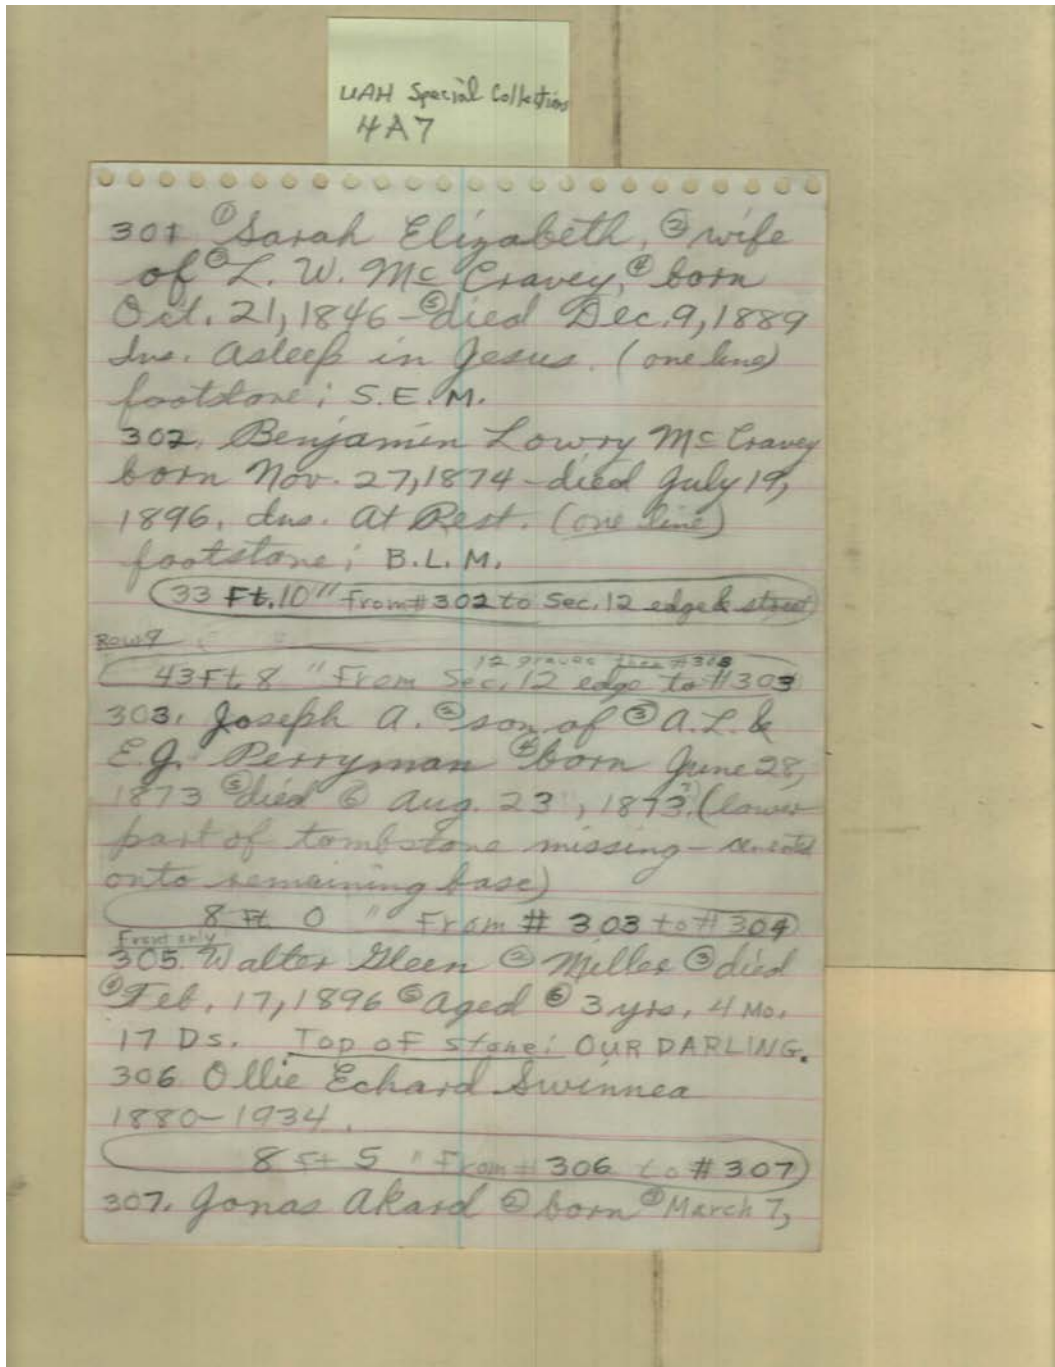 UAH Special Collections
4A7
301. ① Sarah Elizabeth, ② wife
of ③ L. W. McCravey, ④ born
Oct. 21, 1846 - ⑤ died Dec. 9, 1889
Ins. Asleep in Jesus. (one line)
footstone; S.E.M.
302. Benjamin Lowry McCravey
born Nov. 27, 1874 - died July 19,
1896. Ins. At Rest. (one line)
footstone; B.L.M.
33 Ft. 10" From # 302 to Sec. 12 edge & street
Row 9
12 graves
43 Ft 8 " From Sec. 12 edge to # 303
303. Joseph A. ② son of ③ A.L. &
E.J. Perryman ④ born June 28,
1873 ⑤ died ⑥ Aug. 23, 1873. (lower
part of tombstone missing - cemented
onto remaining base)
8 Ft 0 " From # 303 to # 304
Front only
305. Walter Gleen ② Miller ③ died
④ Feb. 17, 1896 ⑤ Aged ⑥ 3 yrs. 4 Mo.
17 Ds. Top of stone: OUR DARLING.
306. Ollie Echard Swinnea
1880-1934.
8 Ft 5 " From # 306 to # 307
307. Jonas Akard ② born ③ March 7,